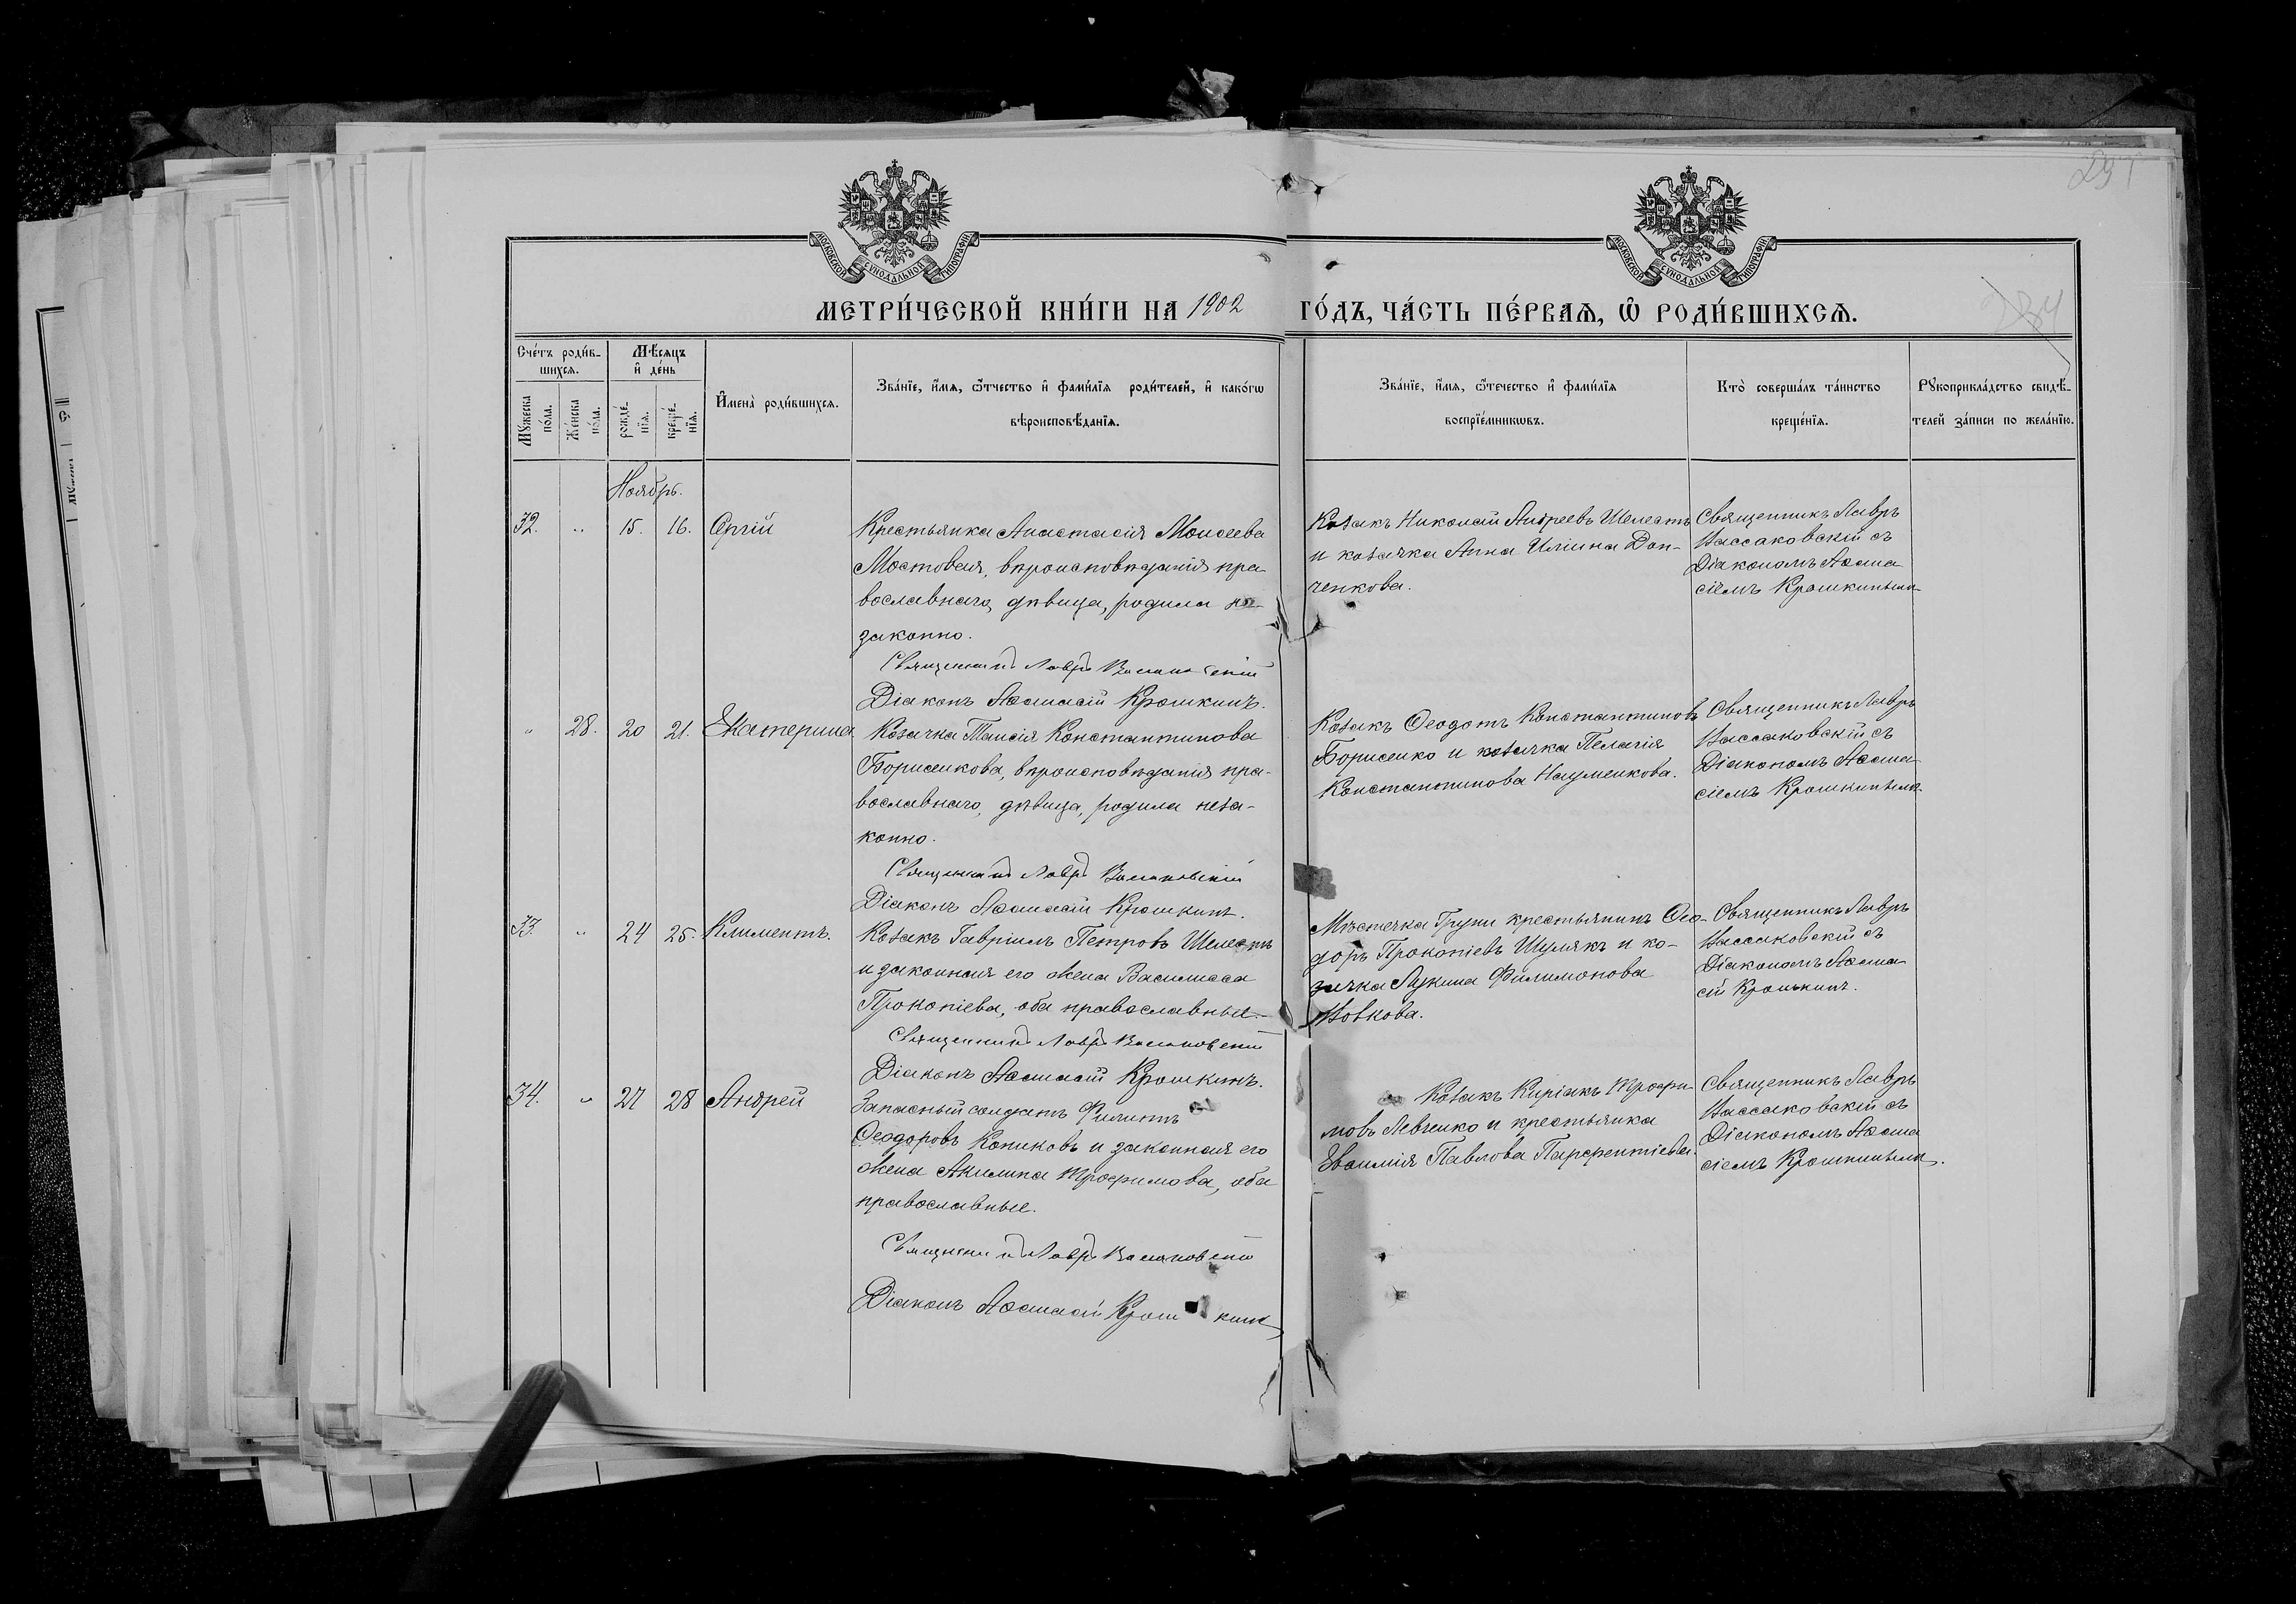 291
МОСКОВСКОЙ СѴНОДАЛЬНОЙ ТИПОГРАФІИ
МОСКОВСКОЙ СѴНОДАЛЬНОЙ ТИПОГРАФІИ
МЕТРИ́ЧЕСКОЙ КНИ́ГИ НА 1902 ГО́ДЪ, ЧА́СТЬ ПЕ́РВАЯ, Ѽ РОДИ́ВШИХСЯ.
234
Сче́тъ роди́в-
шихся.
Мѣ́сяцъ
и҆ де́нь
Му́жеска
по́ла.
Же́нска
по́ла.
рожде́-
нїя.
креще́-
нїя.
И҆мена̀ роди́вшихся.
Зва́нїе, и҆́мя, ѻ҆́тчество и҆ фами́лїя роди́телей, и҆ како́гѡ
вѣроисповѣ́данїя.
Зва́нїе, и҆́мя, ѻ҆́течество и҆ фами́лїя
воспрїе́мникѡвъ.
Кто̀ соверша́лъ та́инство
креще́нїя.
Рукоприкла́дство свидѣ́-
телей за́писи по жела́нїю.
Ноябрь.
32. „ 15. 16. Сергій
Крестьянка Анастасія Моисеева
Мостовая, вѣроисповѣданія пра-
вославнаго, дѣвица, родила не-
законно.
Священникъ Лавръ Вассаковскій
Діаконъ Аѳанасій Крошкинъ.
Козакъ Николай Андреевъ Шелестъ
и козачка Анна Иліина Дон-
ченкова.
Священникъ Лавръ
Вассаковскій съ
Діакономъ Аѳана
сіемъ Крошкинымъ
„ 28. 20 21. Екатерина
Козачка Таисія Константинова
Борисенкова, вѣроисповѣданія пра-
вославнаго, дѣвица, родила неза-
конно.
Священникъ Лавръ Вассаковскій
Діаконъ Аѳанасій Крошкинъ.
Козакъ Ѳеодотъ Константиновъ
Борисенко и козачка Пелагія
Константинова Науменкова.
Священникъ Лавръ
Вассаковскій съ
Діакономъ Аѳана
сіемъ Крошкинымъ
33. „ 24 25. Климентъ.
Козакъ Гавріилъ Петровъ Шелестъ
и законная его жена Василисса
Прокопіева, оба православные.
Священникъ Лавръ Вассаковскій
Діаконъ Аѳанасій Крошкинъ.
Мѣстечка Груни крестьянинъ Ѳео-
доръ Прокопіевъ Шулякъ и ко-
зачка Акилина Филимонова
Вовкова.
Священникъ Лавръ
Вассаковскій съ
Діакономъ Аѳана
сій Крошкинъ.
34. „ 27 28 Андрей
Запасный солдатъ Филиппъ
Ѳеодоровъ Кониковъ и законная его
жена Акилина Трофимова, оба
православные.
Священникъ Лавръ Вассаковскій
Діаконъ Аѳанасій Крошкинъ
Козакъ Киріакъ Трофи-
мовъ Левченко и крестьянка
Евѳимія Павлова Парфентіева.
Священникъ Лавръ
Вассаковскій съ
Діакономъ Аѳана
сіемъ Крошкинымъ.